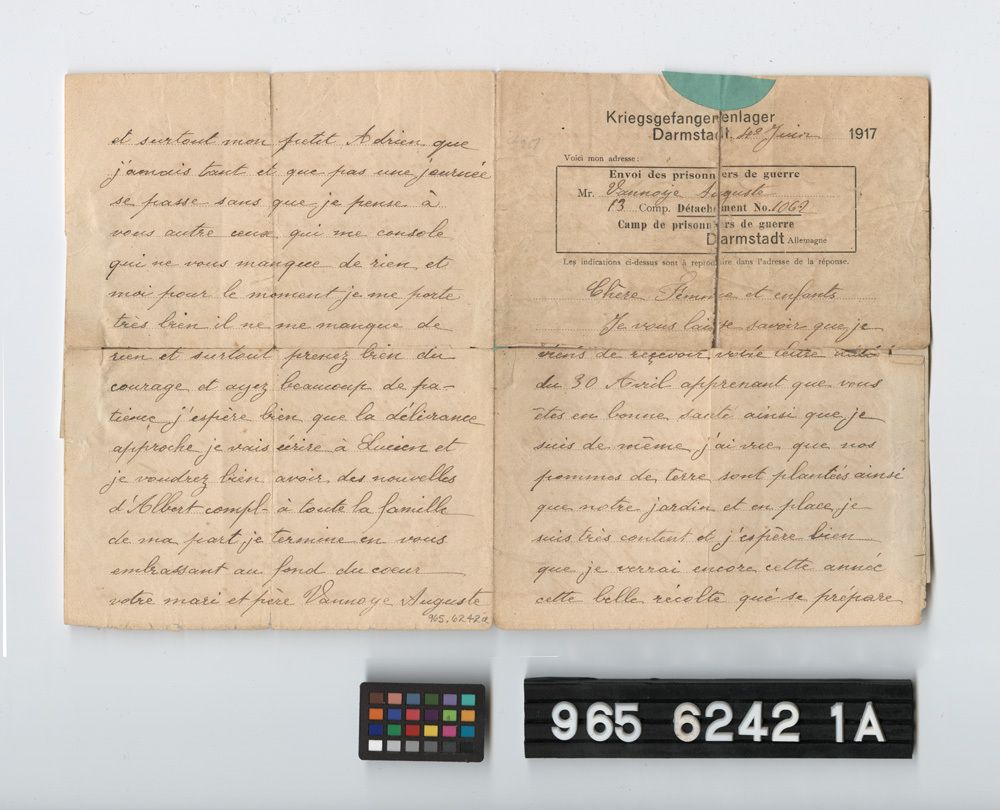 Kriegsgefangenenlager
Darmstadt, 4e Juin 1917
Voici mon adresse:
Envoi des prisonniers de guerre
Mr. Vannoye Auguste
13 Comp. Détachement No. 1062
Camp de prisonniers de guerre
Darmstadt Allemagne
Les indications ci-dessus sont à reproduire dans l'adresse de la réponse.
Chère Femme et enfants
Je vous laisse savoir que je
viens de reçevoir votre lettre
du 30 Avril apprenant que vous
êtes en bonne santé ainsi que je
suis de même j'ai vue que nos
pommes de terre sont plantéés ainsi
que notre jardin et en place, je
suis très content et j'espère bien
que je verrai encore cette année
cette belle récolte qué se prépare
et surtout mon petit Adrien que
j'amais tant et que pas une journée
se passe sans que je pense à
vous autre ceux qui me console
qui ne vous manque de rien et
moi pour le moment je me porte
très bien il ne me manque de
rien et surtout prenez bien du
courage et ayez beaucoup de pa-
tience j'espère bien que la délivrance
approche je vais écrire à Lucien et
je voudrez bien avoir des nouvelles
d'Albert compl- à toute la famille
de ma part, je termine en vous
embrassant au fond du coeur
votre mari et père Vannoye Auguste
965.6242a
965 6242 1A